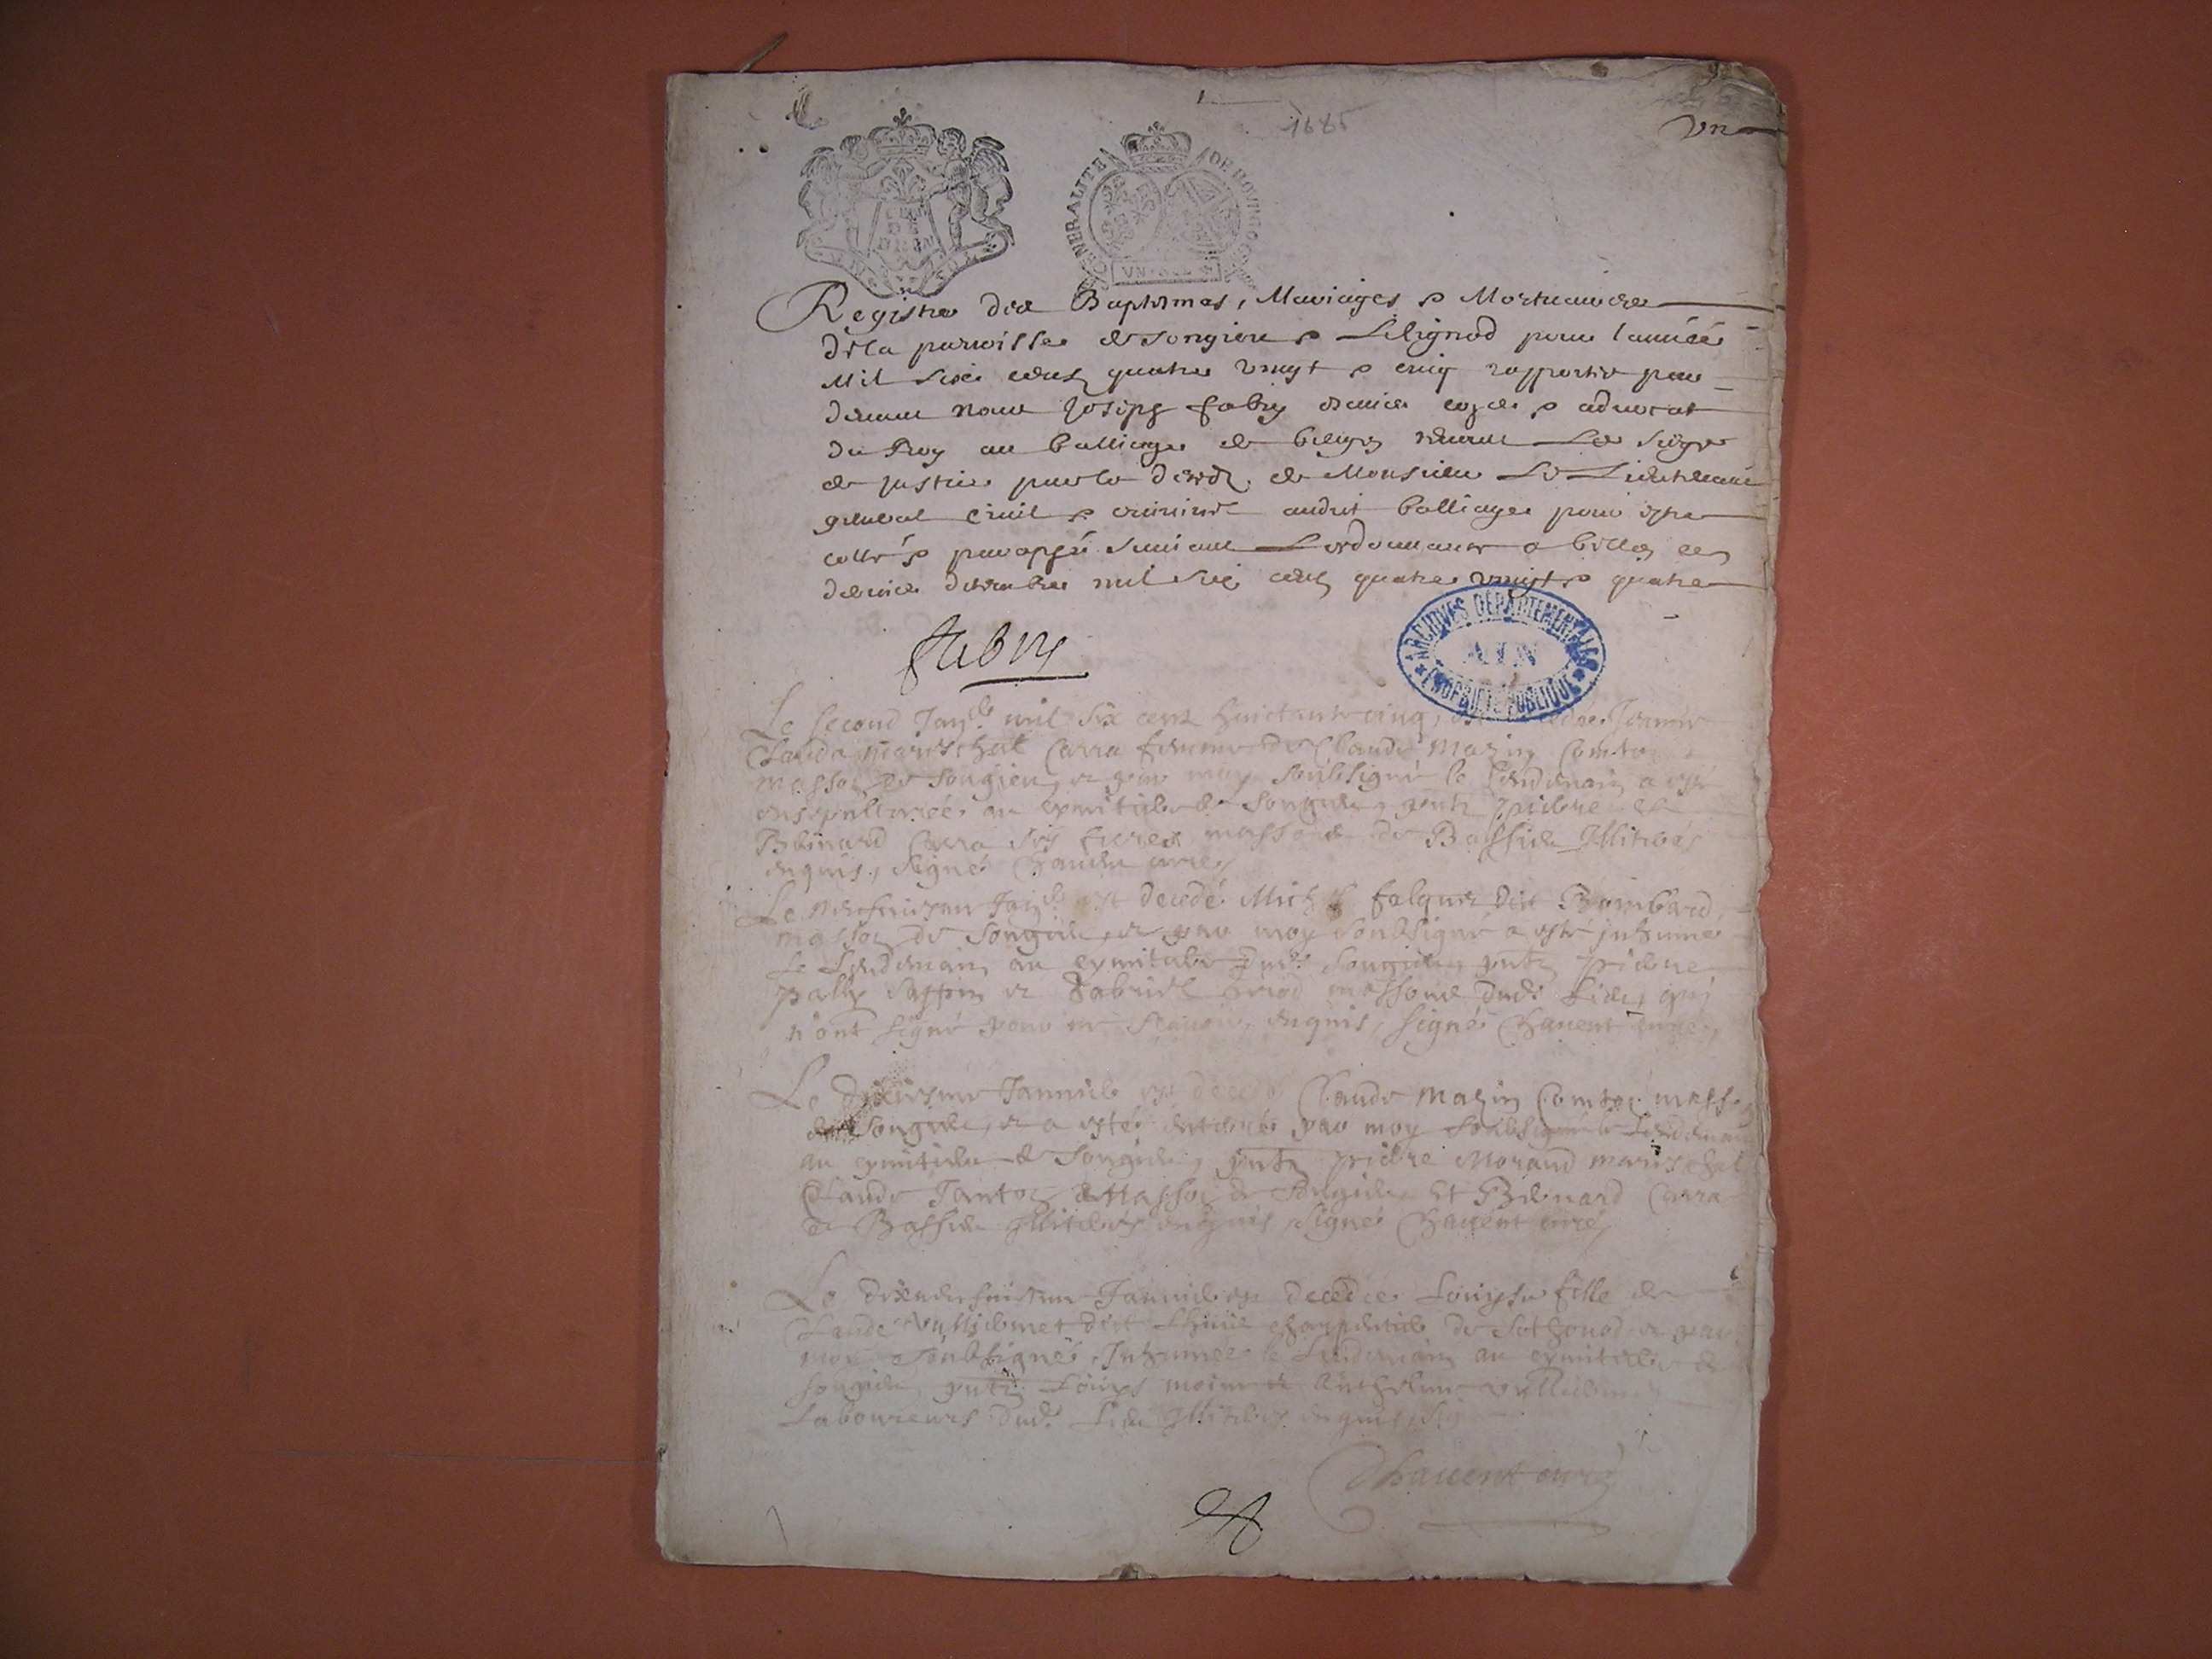 1685
vn
GENERALITE DE BOVRGOG
VN
Registre des Baptesmes, Mariages & Mortuaires
de la parroisse de Songieu & Lilignod pour l'année
Mil Six cents quatre vingt & cinq rapporté par
devant nous Joseph Fabry & advocat
du Roy au balliage de belley tenant Le siege
de justice par le de Monsieur Le Lieutenant
general civil & criminel audit balliage pour estre
cotté & paraphé suivant Lordonnance a belley ce
dernier decembre mil six cents quatre vingts quatre
ARCHIVES DÉPARTEMENTALES
AIN
PROPRIÉTÉ PUBLIQUE
Fabry
Le second Janv.er mil six cent huictante cinq,
Clauda mareschal Carra femme de Claude Mazin Comtoz
masson de Songieu, et par moy soubsigné le lendemain a esté
ensepulturée au cymitiere de Songieu, pnts pierre et
Bernard Carra ses freres massons de Bassieu Illiterés
enquis, signé Chavent curé
Le Janv.er est decedé Michel falquet dit Bombard
masson de Songieu, et par moy soubsigné a esté inhumé
le lendemain au cymitiere dud. Songieu pnts pierre
et Gabriel massons dud. Lieu, qui
n'ont signé pour ne scavoir, enquis, signé Chavent curé
Le dixiesme Janvier est decedé Claude Mazin Comtoz masson
de Songieu, et a esté enterré par moy soubsigné le lendemain
au cymitiere de Songieu, pnts pierre Morand mareschal
Claude Jantoz masson de Songieu Et Bernard Carra
de Bassieu Illiterés enquis, signé Chavent curé
Le Janvier est decedée Louyse fille de
Claude Vulliermet dict charpentier de Sothonod et par
moy soubsigné, Inhumée le lendemain au cymitiere de
Songieu, pnts Louys et Anthelme
Laboureurs dud. Lieu Illiterés enquis
Chavent curé